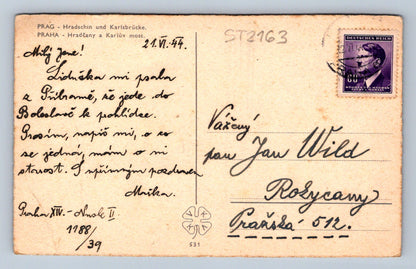 PRAG - Hradschin und Karlsbrücke.
PRAHA - Hradčany a Karlův most.
21.VI.44.
ST2163
DEUTSCHES REICH
60
BÖHMEN UND MÄHREN
Milý Jene!
Liduška mi psala
z Příbramě, že jede do
Boleslavě k pohlídce.
Prosím, napiš mi, o co
se jedná, mám o ni
starost. S upřímným pozdravem
Maška.
Praha XIV. - Nusle II
1188/39
531
Vážený
pan Jan Wild
Rožycany
Pražská 512.